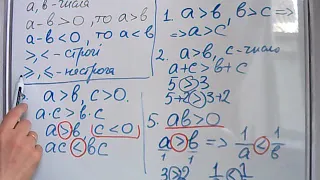 а, в - числа
а-в>0, то а>в
а-в<0, то а<в
>, < - строгі
≥, ≤ - нестрога
1. а>в, в>с =>
=> а>с
2. а>в, с-число
а+с>в+с
5>3
5+2>3+2
3. а>в, с>0.
а·с>в·с
а>в, с<0
ас<вс
5. ав>0
а>в => 1/а < 1/в
3>2 1/3 < 1/2